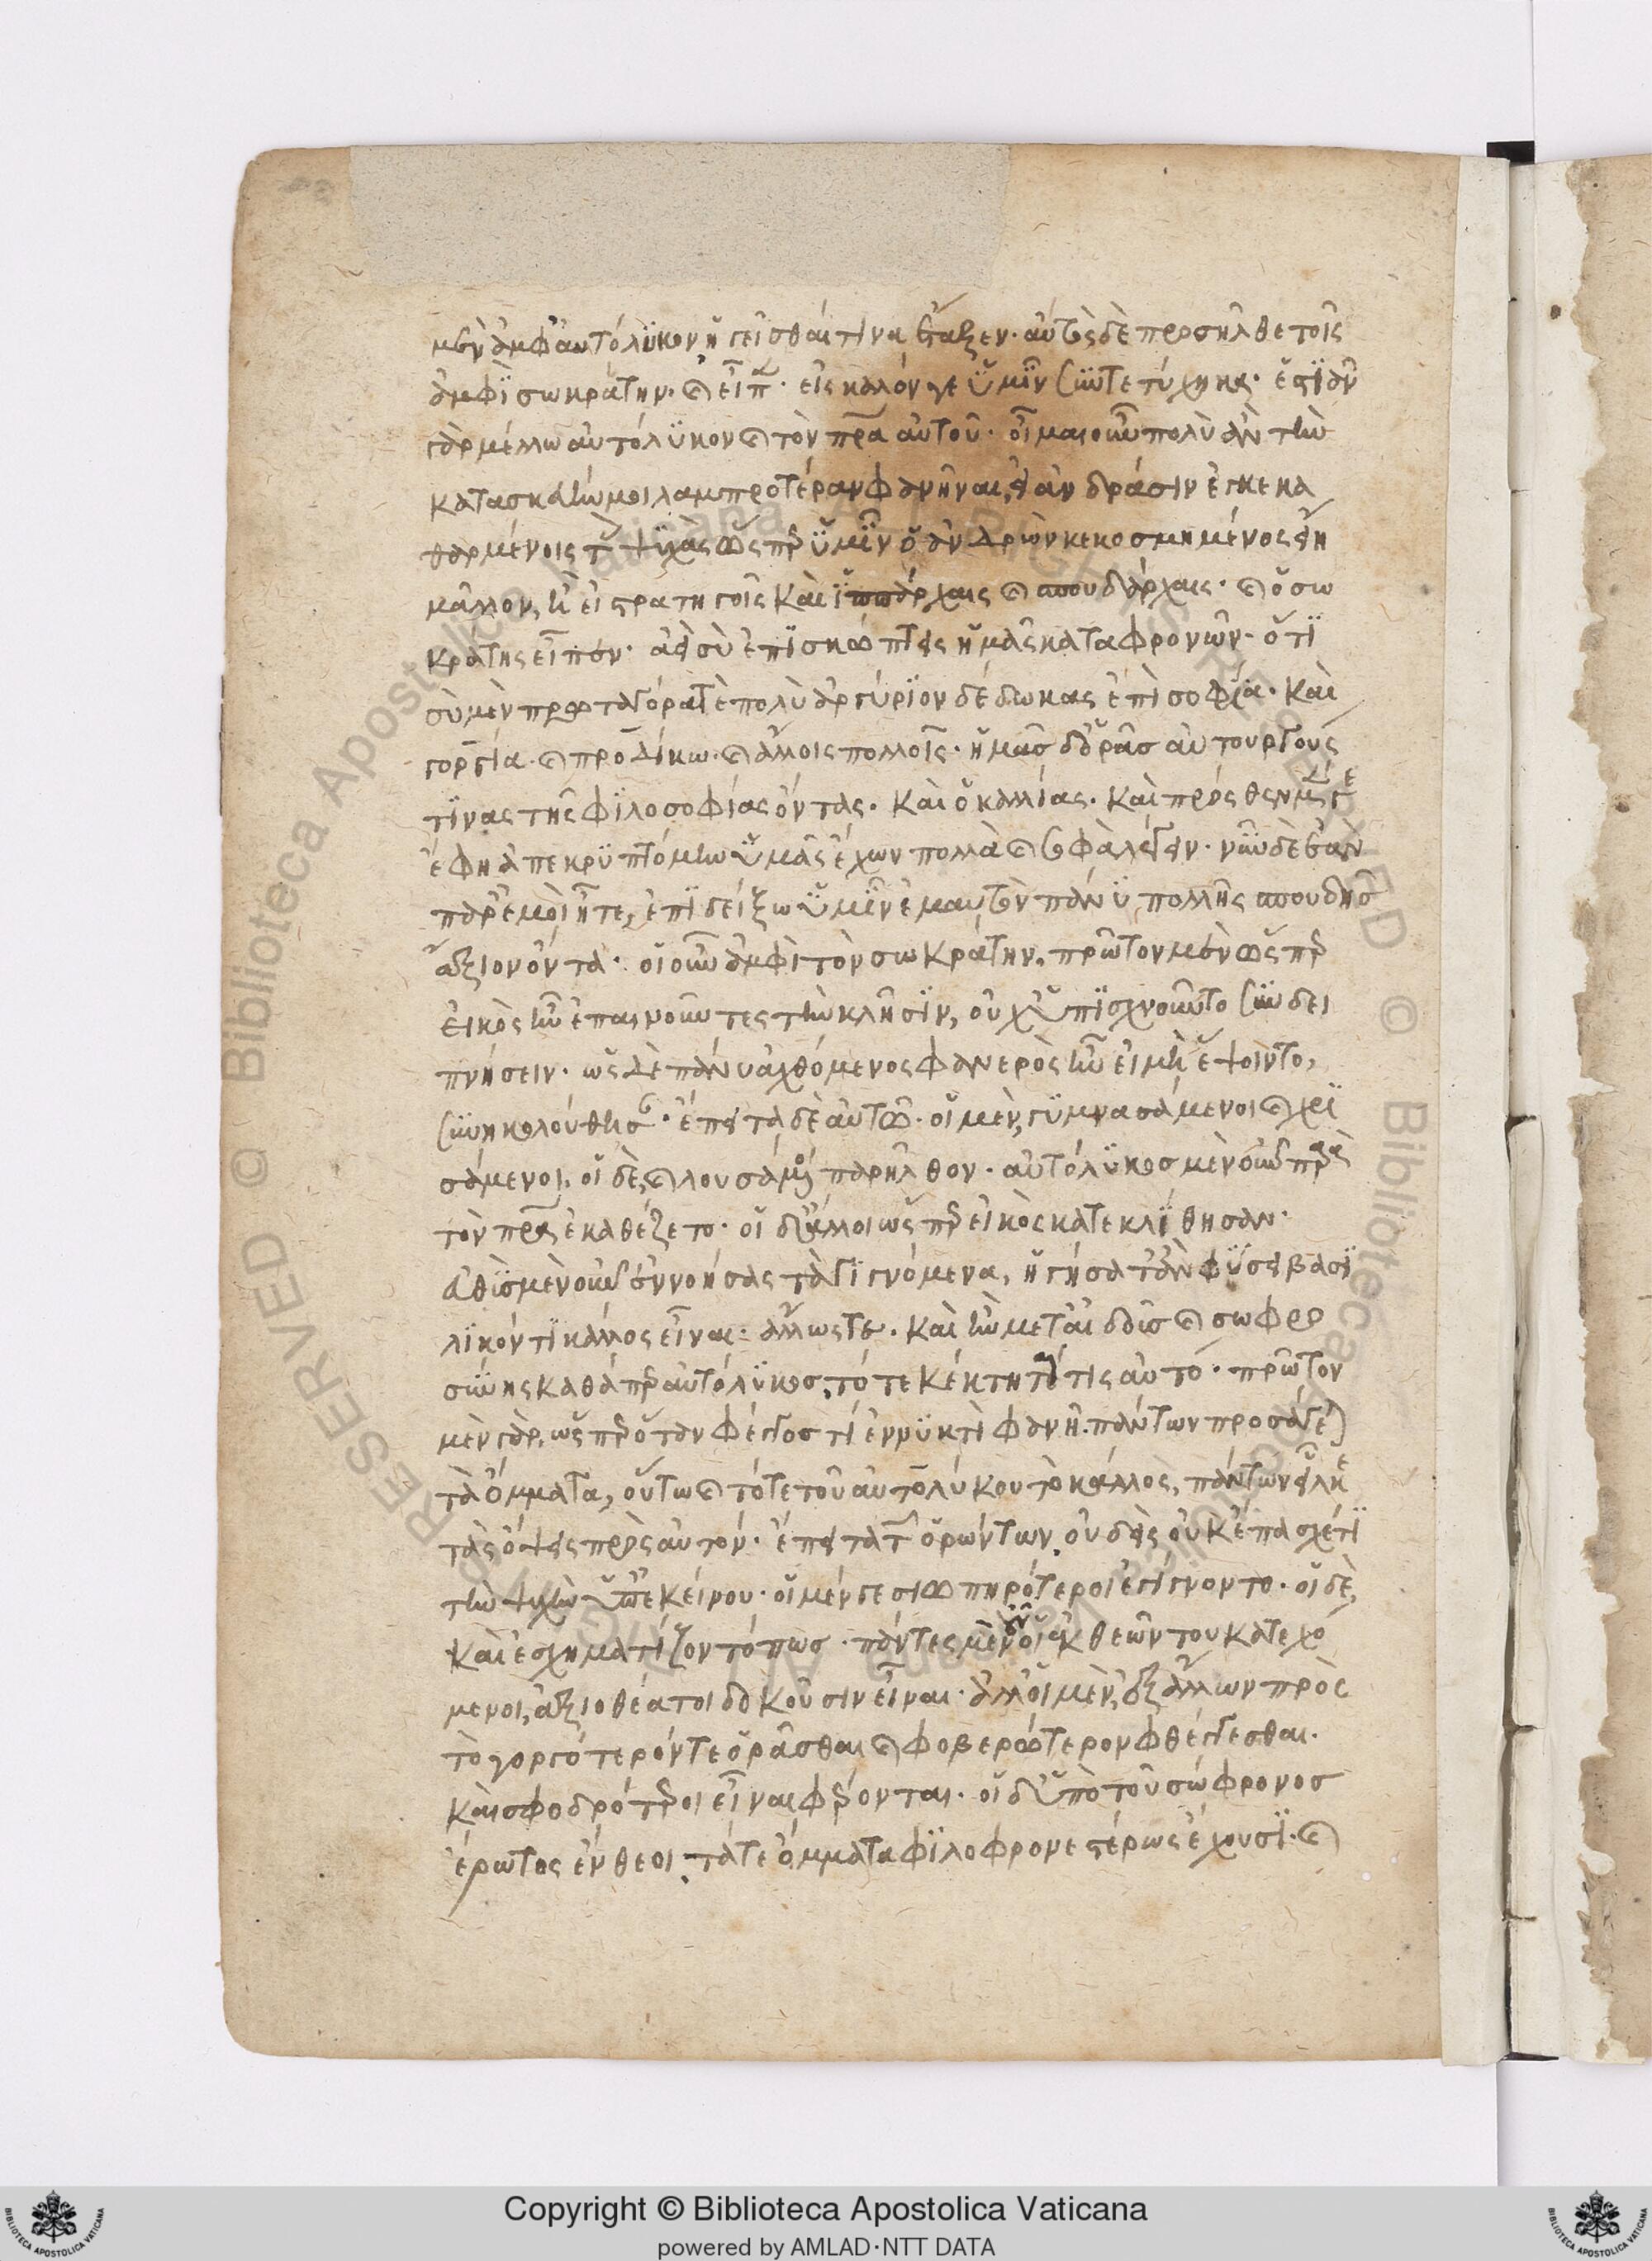 μὲν ἀμφ' αὐτόλυκον ἡγεῖσθαί τινα ἔταξεν· αὐτὸς δὲ προσῆλθε τοῖς
ἀμφὶ σωκράτην· καὶ εἶπεν· εἰς καλόν γε ὑμῖν συντετύχηκα· ἑστιᾶν
γὰρ μέλλω αὐτόλυκον καὶ τὸν πρα αὐτοῦ· οἶμαι οὖν πολὺ ἂν τὴν
κατασκευήν μοι λαμπροτέραν φανῆναι, εἰ ἀνδράσιν ἐκκεκα
θαρμένοις τ ψυχὰς ὥσπερ ὑμῖν ὁ ἀνδρὼν κεκοσμημένος εἴη
μᾶλλον, ἢ εἰ στρατηγοῖς καὶ ἱππάρχαις καὶ σπουδάρχαις· καὶ ὁ σω
κράτης εἶπεν· ἀεὶ σὺ ἐπισκώπτεις ἡμᾶς καταφρονῶν· ὅτι
σὺ μὲν πρωταγόρα τὲ πολὺ ἀργύριον δέδωκας ἐπὶ σοφία· καὶ
γοργία· καὶ προδίκω· καὶ ἄλλοις πολλοῖς· ἡμᾶσ δ' ὁρᾶσ αὐτουργούς
τινας τῆς φιλοσοφίας ὄντας· καὶ ὁ καλλίας· καὶ πρόσθεν μέν γε
ἔφη ἀπεκρυπτόμην ὑμᾶς ἔχων πολλὰ καὶ σοφὰ λέγειν· νῦν δὲ ἐὰν
παρ' ἐμοὶ ἦτε, ἐπιδείξω ὑμῖν ἐμαυτὸν πάνυ πολλῆς σπουδῆσ
ἄξιον ὄντα· οἱ οὖν ἀμφὶ τὸν σωκράτην, πρῶτον μὲν ὥσπερ
εἰκὸς ἦν ἐπαινοῦντες τὴν κλῆσιν, οὐχ ὑπισχνοῦντο συνδει
πνήσειν· ὡς δὲ πάνυ ἀχθόμενος φανερὸς ἦν εἰ μὴ ἕψοιντο,
συνηκολούθησαν· ἔπειτα δὲ αὐτῶ· οἱ μὲν, γυμνασάμενοι καὶ χρι
σάμενοι, οἱ δὲ, καὶ λουσάμενοι παρῆλθον· αὐτόλυκοσ μὲν οὖν παρὰ
τὸν πρα ἐκαθέζετο· οἱ δ' ἄλλοι ὥσπερ εἰκὸς κατεκλίθησαν·
εὐθὺσ μὲν οὖν ἐννοήσας τὰ γιγνόμενα, ἡγήσατ' ἂν φύσει βασι
λικόν τι κάλλος εἶναι· ἄλλως τε· καὶ ἢν μετ' αἰδοῦσ καὶ σωφρο
σύνης καθάπερ αὐτόλυκοσ, τότε κέκτηταί τις αὐτό· πρῶτον
μὲν γὰρ, ὥσπερ ὅταν φέγγοσ τι ἐν νυκτὶ φανῆ, πάντων προσάγεται
τὰ ὄμματα, οὕτω καὶ τότε τοῦ αὐτολύκου τὸ κάλλοσ, πάντων εἷλκε
τὰς ὄψεις πρὸς αὐτόν· ἔπειτα τ ὁρώντων, οὐδεὶς οὐκ ἔπασχέ τι
τὴν ψυχὴν ὑπ' ἐκείνου· οἱ μέν γε σιωπηρότεροι ἐγίγνοντο· οἱ δὲ,
καὶ ἐσχηματίζοντό πως· πάντες μὲν οὖν οἱ ἐκ θεῶν του κατεχό
μενοι, ἀξιοθέατοι δοκοῦσιν εἶναι· ἀλλ' οἱ μὲν, ἐξ ἄλλων πρὸς
τὸ γοργότερόν τε ὁρᾶσθαι καὶ φοβερώτερον φθέγγεσθαι·
καὶ σφοδρότεροι εἶναι φέρονται· οἱ δ' ὑπὸ τοῦ σώφρονοσ
ἔρωτος ἔνθεοι, τά τε ὄμματα φιλοφρονεστέρως ἔχουσι· καὶ
Copyright © Biblioteca Apostolica Vaticana
powered by AMLAD·NTT DATA